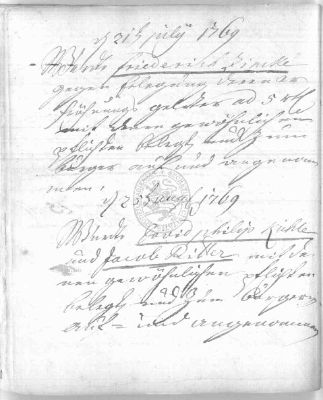 d 21t july 1769
Wurde friederich Dincke
gegen Erlegung derer Er
höhungs gelder ad 5 rth
mit denen gewöhnlichen
pflichten belegt und zum
bürger auf und angenom
men,
d 25 1769
Wurde David philip Kuhle
und Jacob Ritter mit de
nen gewöhnlichen pflichten
belegt und zum bürgern
auf= und angenommen